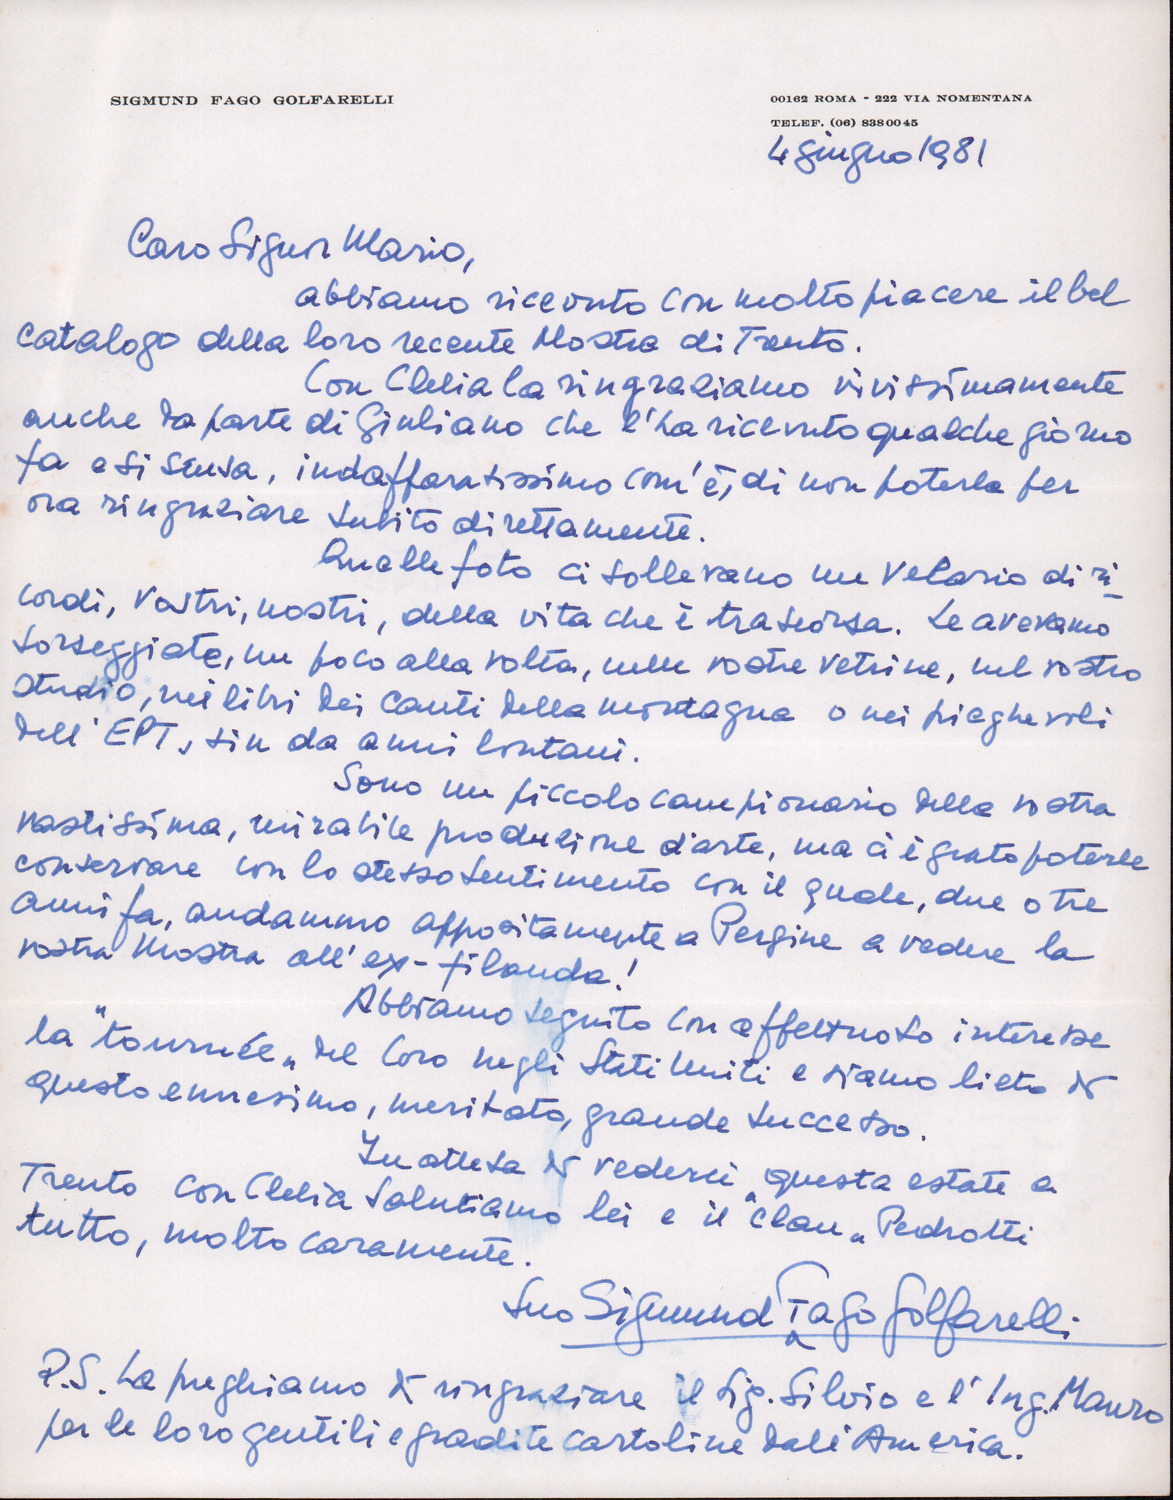 SIGMUND FAGO GOLFARELLI
00162 ROMA - 222 VIA NOMENTANA
TELEF. (06) 8380045
4 giugno 1981
Caro Signor Mario,
abbiamo ricevuto con molto piacere il bel
catalogo della loro recente Mostra di Trento.
Con Clelia La ringraziamo vivissimamente
anche da parte di Giuliano che l'ha ricevuto qualche giorno
fa e si scusa, indaffaratissimo com'è, di non poterla per
ora ringraziare subito direttamente.
Quelle foto ci sollevano un velario di ri
cordi, vostri, nostri, della vita che è trascorsa. Le avevamo
sorseggiate, un poco alla volta, nelle vostre vetrine, nel vostro
studio, nei libri dei canti della montagna o nei pieghevoli
dell'EPT, sin da anni lontani.
Sono un piccolo campionario della vostra
vastissima, mirabile produzione d'arte, ma ci è grato poterle
conservare con lo stesso sentimento con il quale, due o tre
anni fa, andammo appositamente a Pergine a vedere la
vostra Mostra all'ex-filanda!
Abbiamo seguito con affettuoso interesse
la "tournée" del Coro negli Stati Uniti e siamo lieti di
questo ennesimo, meritato, grande successo.
In attesa di vederci questa estate a
Trento con Clelia salutiamo lei e il "clan" Pedrotti
tutto, molto caramente.
Suo Sigmund Fago Golfarelli
P.S. La preghiamo di ringraziare il Sig. Silvio e l'Ing. Mauro
per le loro gentili e gradite cartoline dall'America.